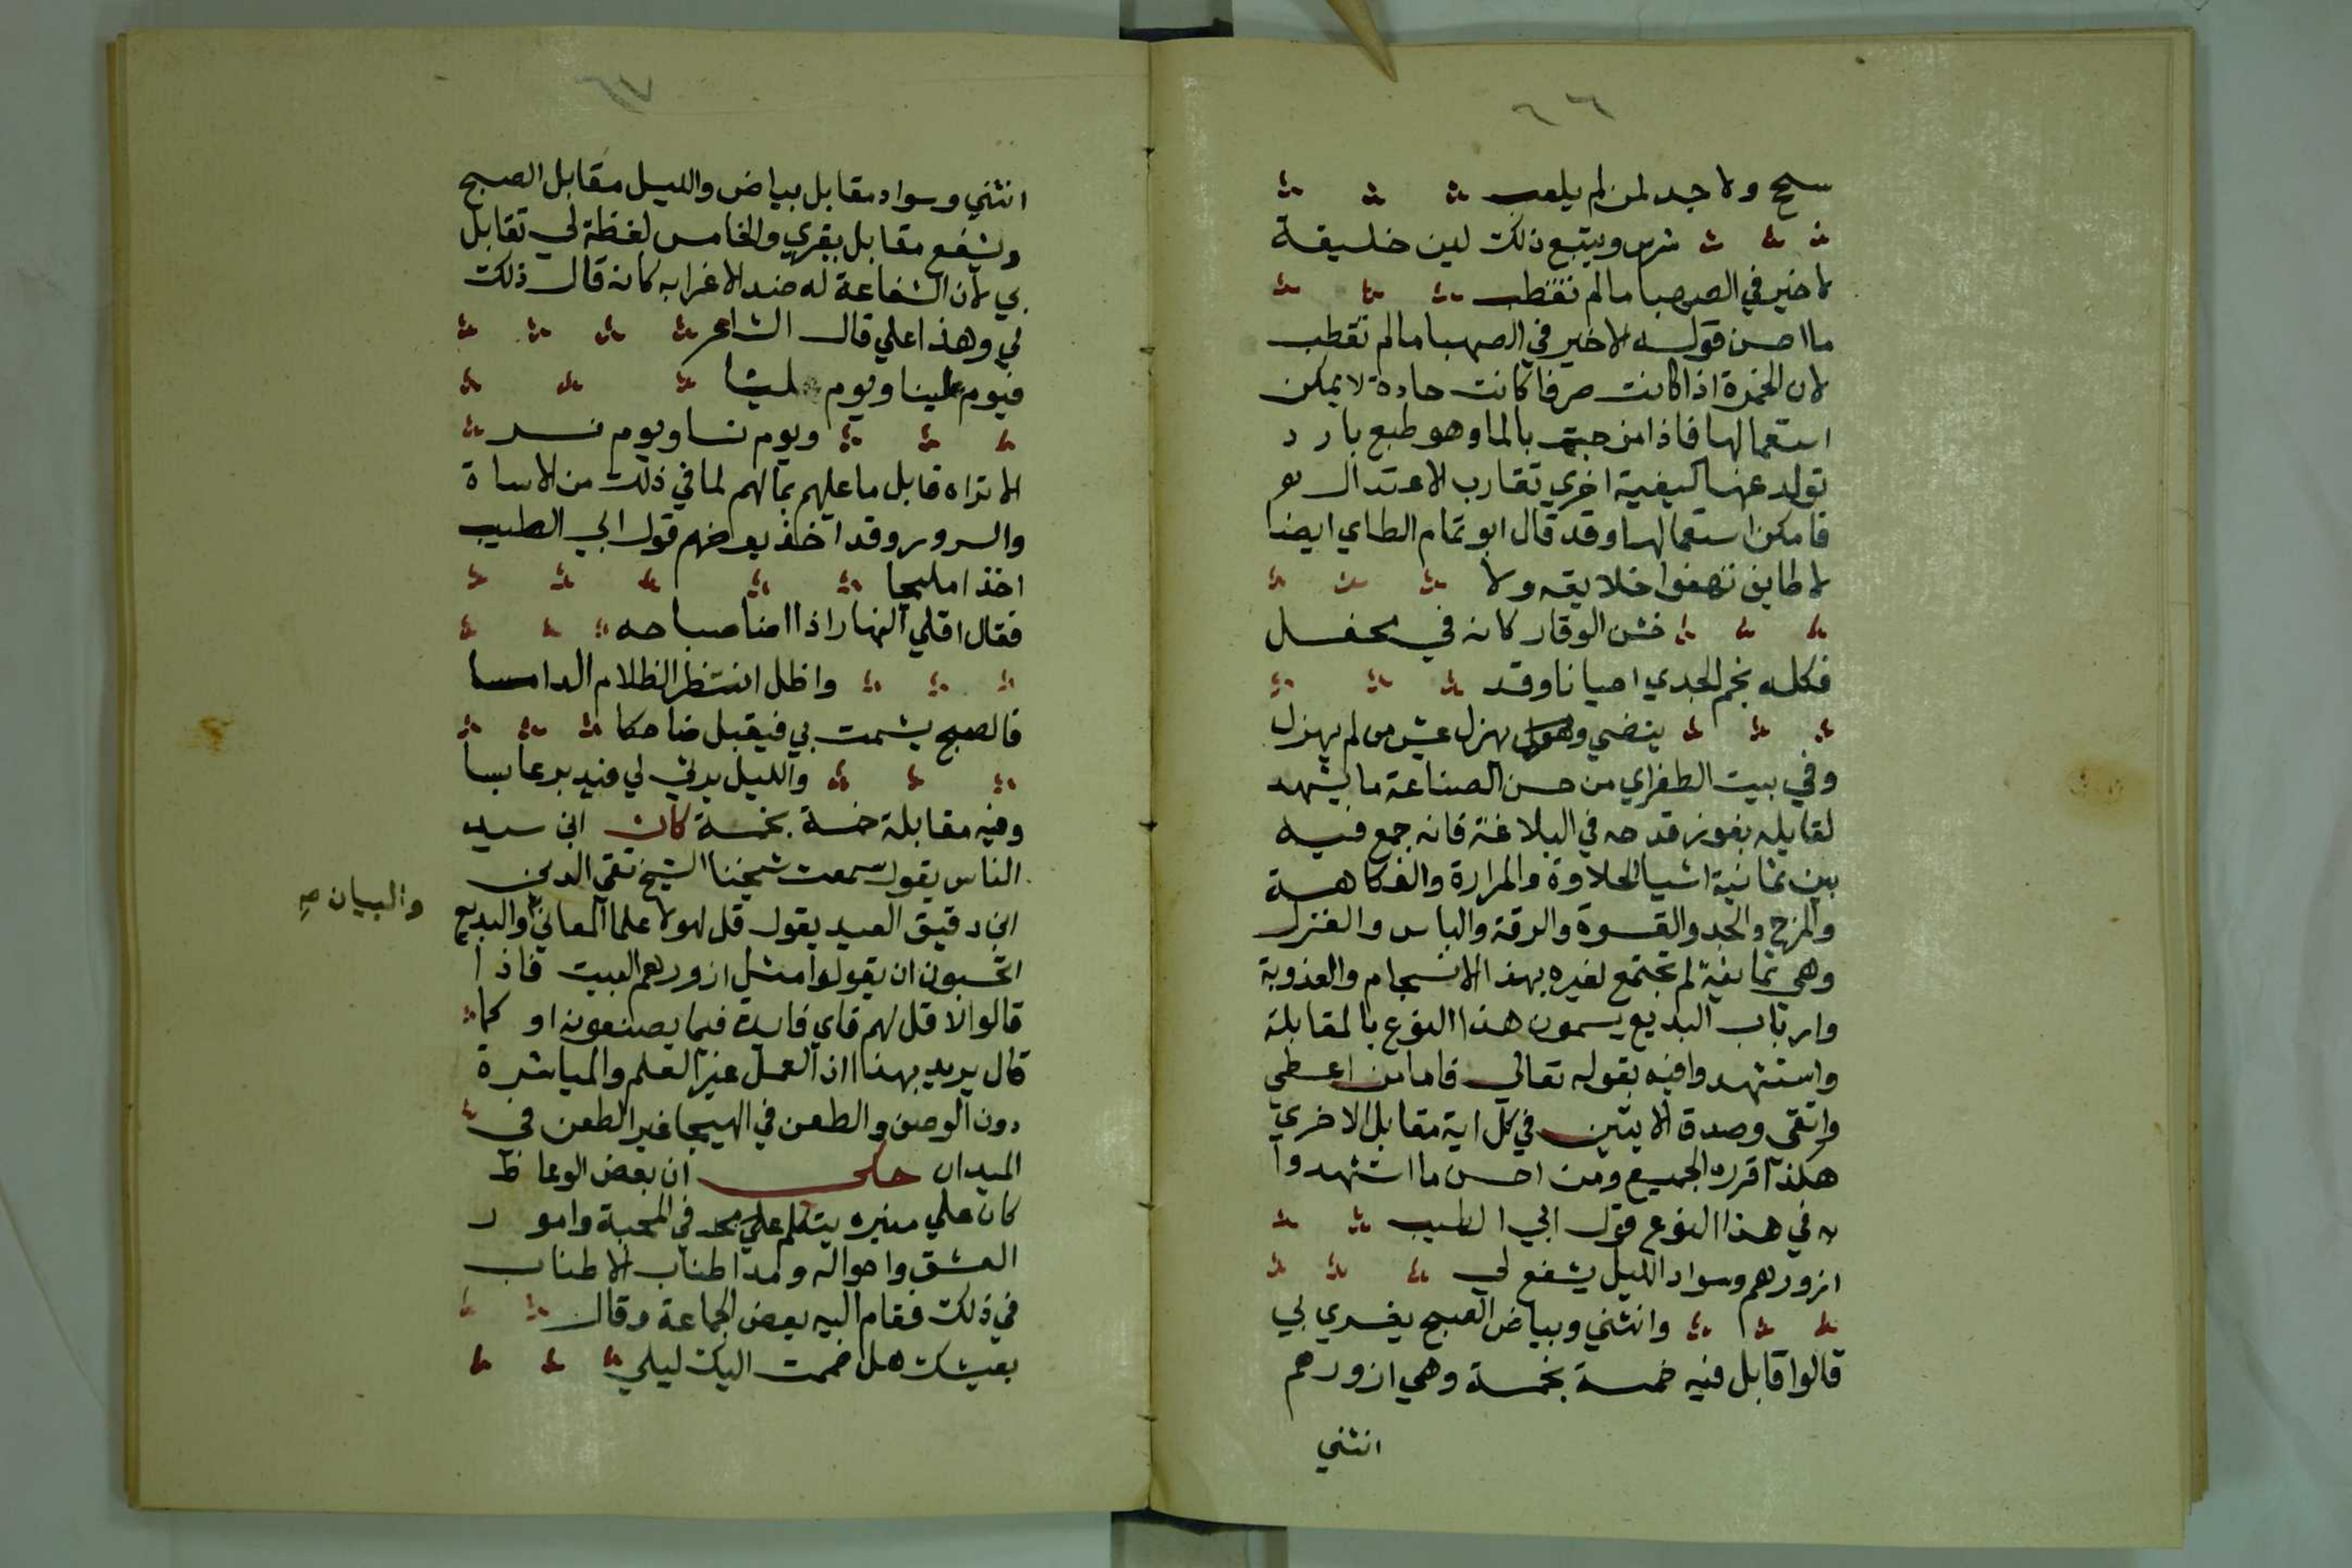 ٦٦
سمح ولا جد لمن لم يلعب
شرس ويتبع ذلك لين خليقة
لا خير في الصهبا مالم تقطب
ما احسن قوله لا خير في الصهبا مالم تقطب
لان الخمرة اذا كانت صرفا كانت حادة لا يمكن
استعمالها فاذا مزجت بالما وهو طبع بارد
تولد عنها كيفية اخري تقارب الاعتدال
فامكن استعمالها وقد قال ابو تمام الطاي ايضا
لا طايش تهفوا خلايقه ولا
خشن الوقار كانه في محفل
فكله بجم الجدي احيانا وقد
ينضي ويهزل عيش من لم يهزل
وفي بيت الطغراي من حسن الصناعة ما يشهد
لقايله بفوز قدحه في البلاغة فانه جمع فيه
بين ثمانية اشيا الحلاوة والمرارة والفكاهة
والمزح والجد والقسوة والرقة والباس والغزل
وهي ثمانية لم تجتمع لغيره بهذا الانسجام والعذوبة
وارباب البديع يسمون هذا النوع بالمقابلة
واستشهدوا فيه بقوله تعالي فاما من اعطي
واتقي وصدق الايتين في كل اية مقابل الاخري
هكذا اقرره الجميع ومن احسن ما استشهدوا
به في هذا النوع قول ابي الطيب
ازورهم وسواد الليل يشفع لي
وانثني وبياض الصبح يغري بي
قالوا قابل فيه خمسة بخمسة وهي ازورهم
انثني
٦٧
انثني وسواد مقابل بياض والليل مقابل الصبح
ويشفع مقابل يغري والخامس لفظة لي تقابل
بي لان الشفاعة له ضد الاغرا به كانه قال ذلك
لي وهذا علي قال الشاعر
فيوم علينا ويوم لنا
ويوم نسا ويوم نسر
الا تراه قابل ما عليهم بمالهم لما في ذلك من الاساة
والسرور وقد اخذ بعضهم قول ابي الطيب
اخذا مليحا
فقال اقلي النهار اذا اضا صباحه
واظل انتظر الظلام الدامسا
فالصبح يشمت بي فيقبل ضاحكا
والليل يرثي لي فيدبر عابسا
وفيه مقابلة خمسة بخمسة كان ابن سيد
الناس يقول سمعت شيخنا الشيخ تقي الدين
ابن دقيق العيد يقول قل لهولا علما المعاني والبديع
والبيان صح
اتحسبون ان يقولوا مثل ازورهم البيت فاذا
قالوا لا قل لهم فاي فايدة فيما يصنعونه او كما
قال يريد بهذا ان العمل غير العلم والمباشرة
دون الوصف والطعن في الهيجا غير الطعن في
الميدان حكي ان بعض الوعاظ
كان علي منبره يتكلم علي في المحبة وامور
العشق واحواله ومد اطناب الاطناب
في ذلك فقام اليه بعض الجماعة وقال
بعيشك هل ضممت اليك ليلي